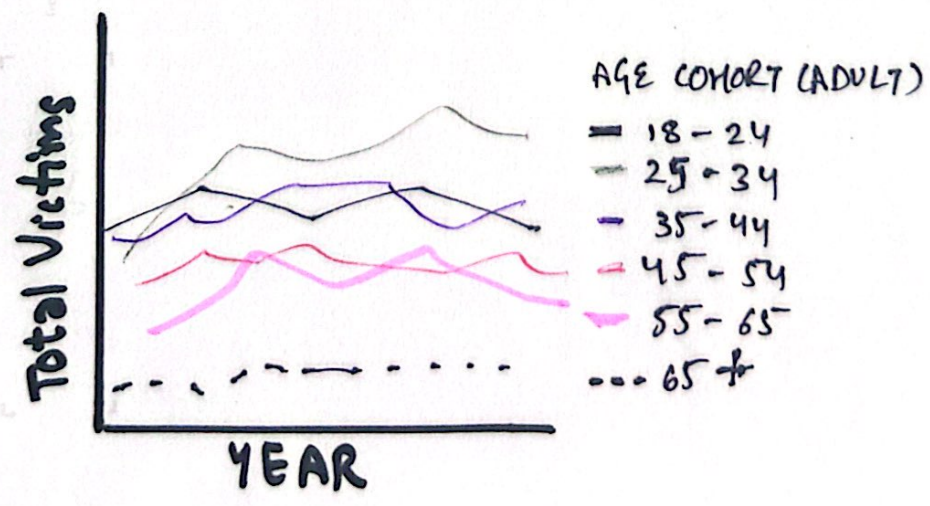 Total Victims
YEAR
AGE COHORT (ADULT)
18 - 24
25 - 34
35 - 44
45 - 54
55 - 65
65 +